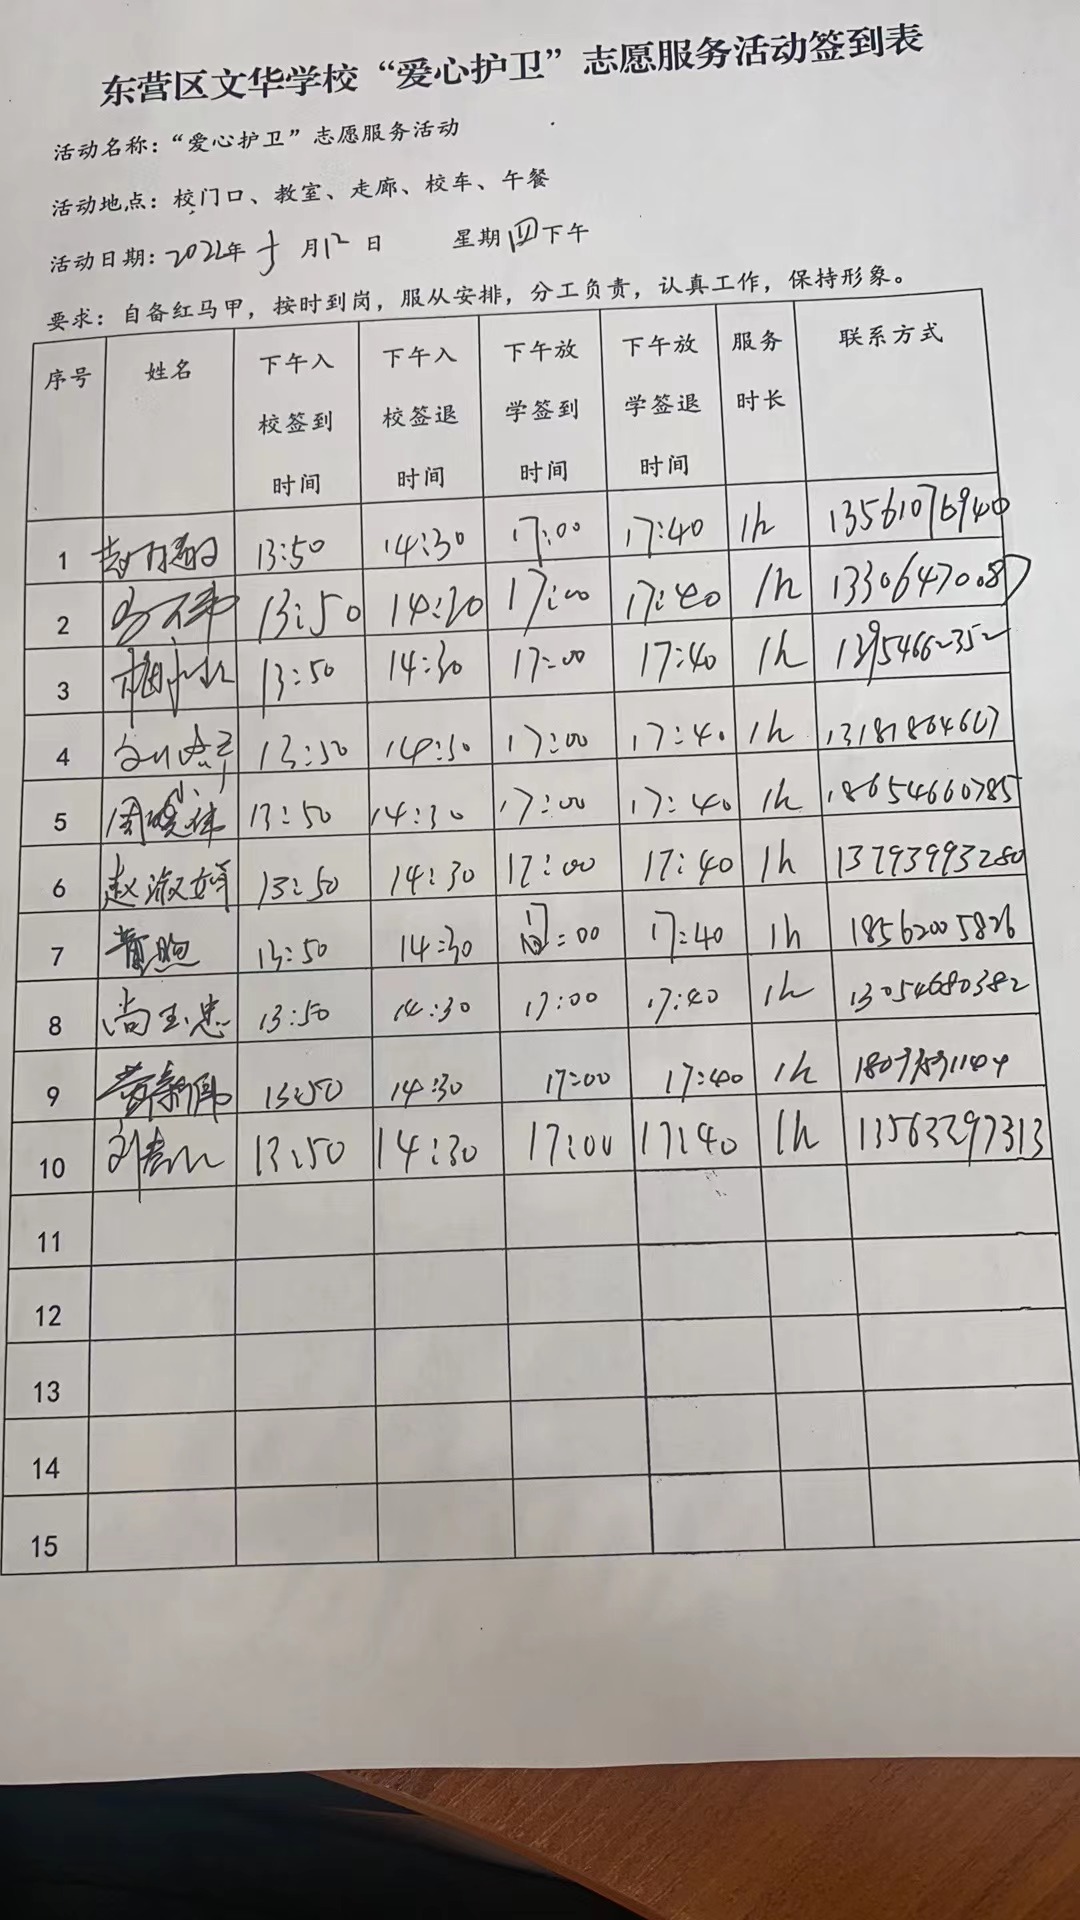 东营区文华学校“爱心护卫”志愿服务活动签到表
活动名称：“爱心护卫”志愿服务活动
活动地点：校门口、教室、走廊、校车、午餐
活动日期：2022年5月12日 星期四下午
要求：自备红马甲，按时到岗，服从安排，分工负责，认真工作，保持形象。
序号 姓名 下午入校签到时间 下午入校签退时间 下午放学签到时间 下午放学签退时间 服务时长 联系方式
1 13:50 14:30 17:00 17:40 1h 13561076940
2 13:50 14:30 17:00 17:40 1h 13306470087
3 13:50 14:30 17:00 17:40 1h 13954662352
4 13:50 14:30 17:00 17:40 1h 13181864607
5 周晓伟 13:50 14:30 17:00 17:40 1h 18654660785
6 赵淑娟 13:50 14:30 17:00 17:40 1h 13793993280
7 13:50 14:30 17:00 17:40 1h 18562005826
8 尚玉忠 13:50 14:30 17:00 17:40 1h 13054680382
9 13:50 14:30 17:00 17:40 1h
10 13:50 14:30 17:00 17:40 1h 13563297313
11
12
13
14
15